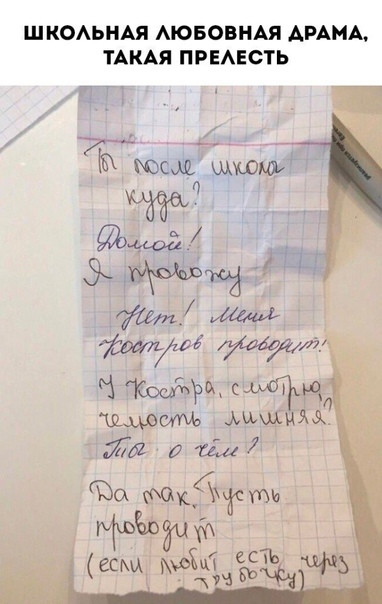 ШКОЛЬНАЯ ЛЮБОВНАЯ ДРАМА,
ТАКАЯ ПРЕЛЕСТЬ
Ты после школы
куда?
Домой!
Я провожу
Нет! Меня
Костров проводит!
У Костра, смотрю,
челюсть лишняя?
Ты о чём?
Да так. Пусть
проводит
(если любит есть через
трубочку)